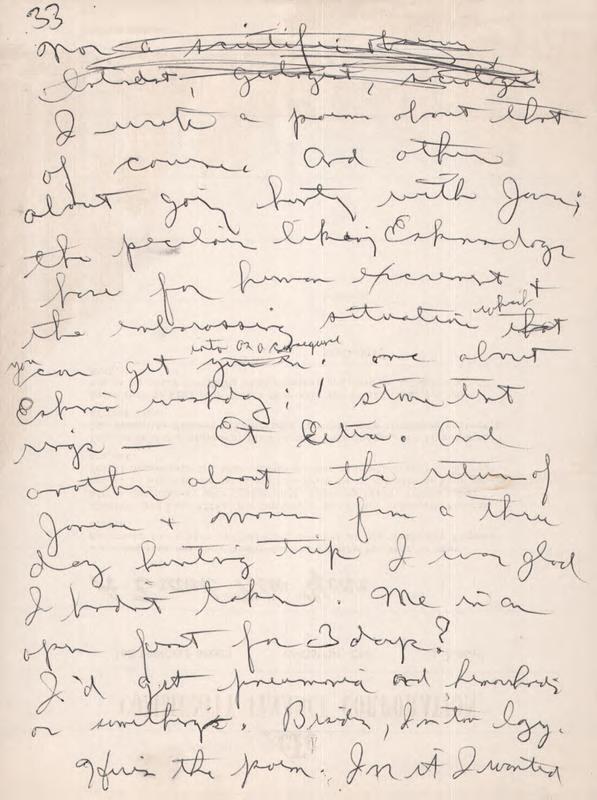 33
Nor a scientific
botanist, geologist, sociologist
I wrote a poem about that
of course. And others
about going hunting with Jorn;
the peculiar liking Eskimo dogs
have for human excrement &
the embarrassing situation which that
you can get into as a consequence. one about
Eskimo washday; stone tent
rings — Et Cetra. And
another about the return of
& women from a three
day hunting trip. I was glad
I hadnt taken. Me in an
open boat for 3 days?
I'd get pneumonia and hemorhoids
or something. Besides, I'm too lazy.
Here's the poem. In it I wanted